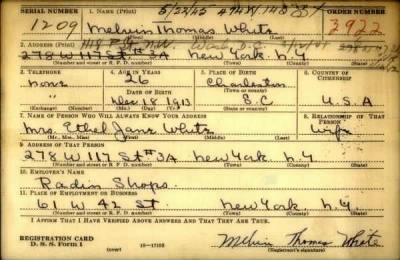 SERIAL NUMBER 1. NAME (Print) 5/22/45 ORDER NUMBER
1209 Melvin Thomas White 3922
(First) (Middle) (Last)
2. ADDRESS (Print)
278 W 117 St #3A New York N.Y
(Number and street or R. F. D. number) (Town) (County) (State)
3. TELEPHONE 4. AGE IN YEARS 5. PLACE OF BIRTH 6. COUNTRY OF CITIZENSHIP
none 26 Charleston
DATE OF BIRTH (Town or county)
Dec 18 1913 S.C U.S.A
(Exchange) (Number) (Mo.) (Day) (Yr.) (State or country)
7. NAME OF PERSON WHO WILL ALWAYS KNOW YOUR ADDRESS 8. RELATIONSHIP OF THAT PERSON
Mrs. Ethel Jane White Wife
(Mr., Mrs., Miss) (First) (Middle) (Last)
9. ADDRESS OF THAT PERSON
278 W 117 St #3A New York N.Y
(Number and street or R. F. D. number) (Town) (County) (State)
10. EMPLOYER'S NAME
Radin Shops
11. PLACE OF EMPLOYMENT OR BUSINESS
61 W 42 St New York N.Y
(Number and street or R. F. D. number) (Town) (County) (State)
I AFFIRM THAT I HAVE VERIFIED ABOVE ANSWERS AND THAT THEY ARE TRUE.
REGISTRATION CARD
D. S. S. FORM 1 (over) 16—17105 Melvin Thomas White
(Registrant's signature)